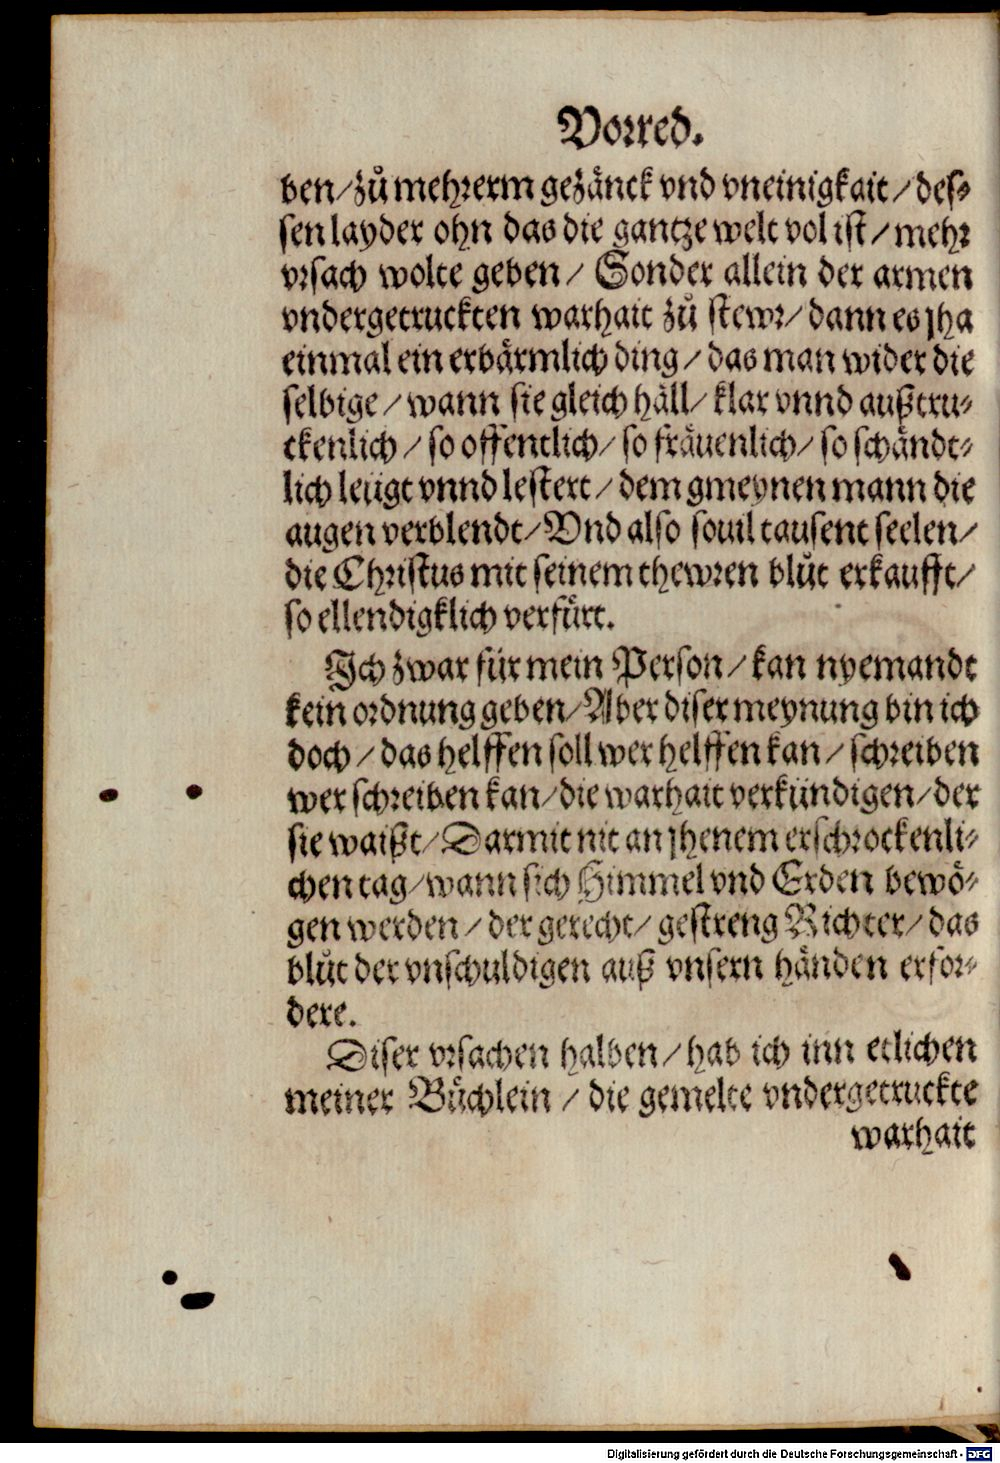 Vorred.
ben/zů mehrerm gezänck vnd vneinigkait/des-
sen layder ohn das die gantze welt vol ist/mehr
vrsach wolte geben/ Sonder allein der armen
vndergetruckten warhait zů stewr/dann es jha
einmal ein erbärmlich ding/das man wider die
selbige/wann sie gleich häll/klar vnnd außtru-
ckenlich/so offentlich/so fräuenlich/so schändt-
lich leügt vnnd lestert/dem gmeynen mann die
augen verblendt/Vnd also souil tausent seelen/
die Christus mit seinem thewren blůt erkaufft/
so ellendigklich verfürt.
Ich zwar für mein Person/kan nyemandt
kein ordnung geben/Aber diser meynung bin ich
doch/das helffen soll wer helffen kan/schreiben
wer schreiben kan/die warhait verkündigen/der
sie waißt/Darmit nit an jhenem erschrockenli-
chen tag/wann sich Himmel vnd Erden bewö-
gen werden/der gerecht/gestreng Richter/das
blůt der vnschuldigen auß vnsern händen erfor-
dere.
Diser vrsachen halben/hab ich inn etlichen
meiner Büchlein/die gemelte vndergetruckte
warhait
Digitalisierung gefördert durch die Deutsche Forschungsgemeinschaft - DFG